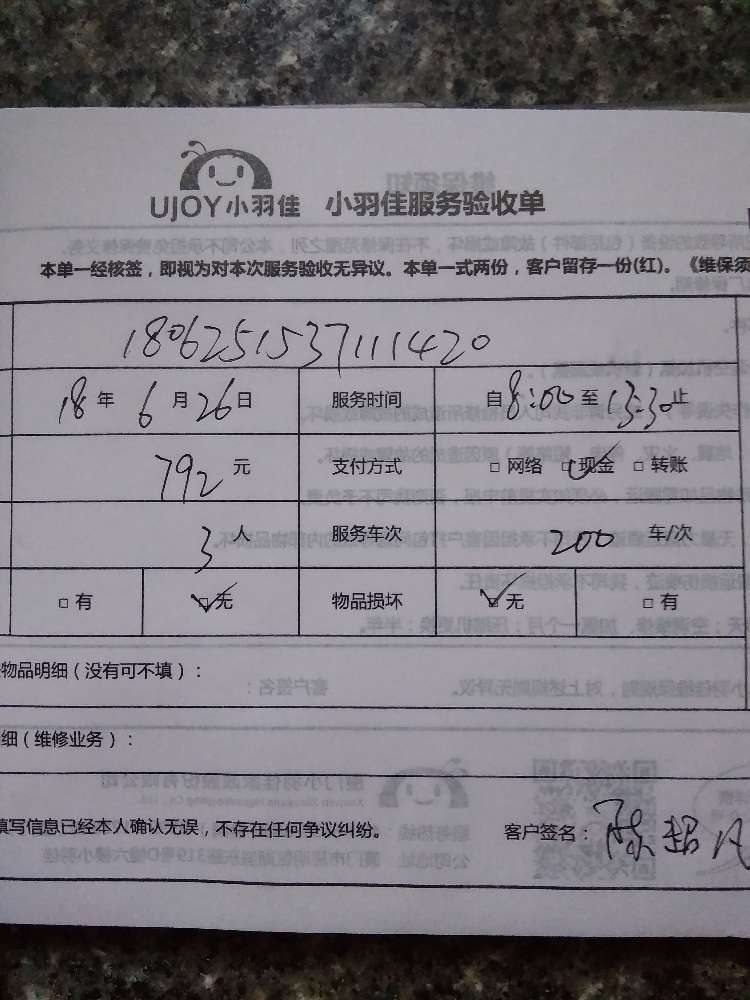 UJOY小羽佳 小羽佳服务验收单
本单一经核签，即视为对本次服务验收无异议。本单一式两份，客户留存一份(红)。《维保须
1806251537111420
18年 6月26日 服务时间 自8:00至13:30止
792元 支付方式 □网络 □现金 □转账
3人 服务车次 200车/次
□有 □无 物品损坏 □无 □有
物品明细（没有可不填）：
细（维修业务）：
填写信息已经本人确认无误，不存在任何争议纠纷。 客户签名：陈超凡